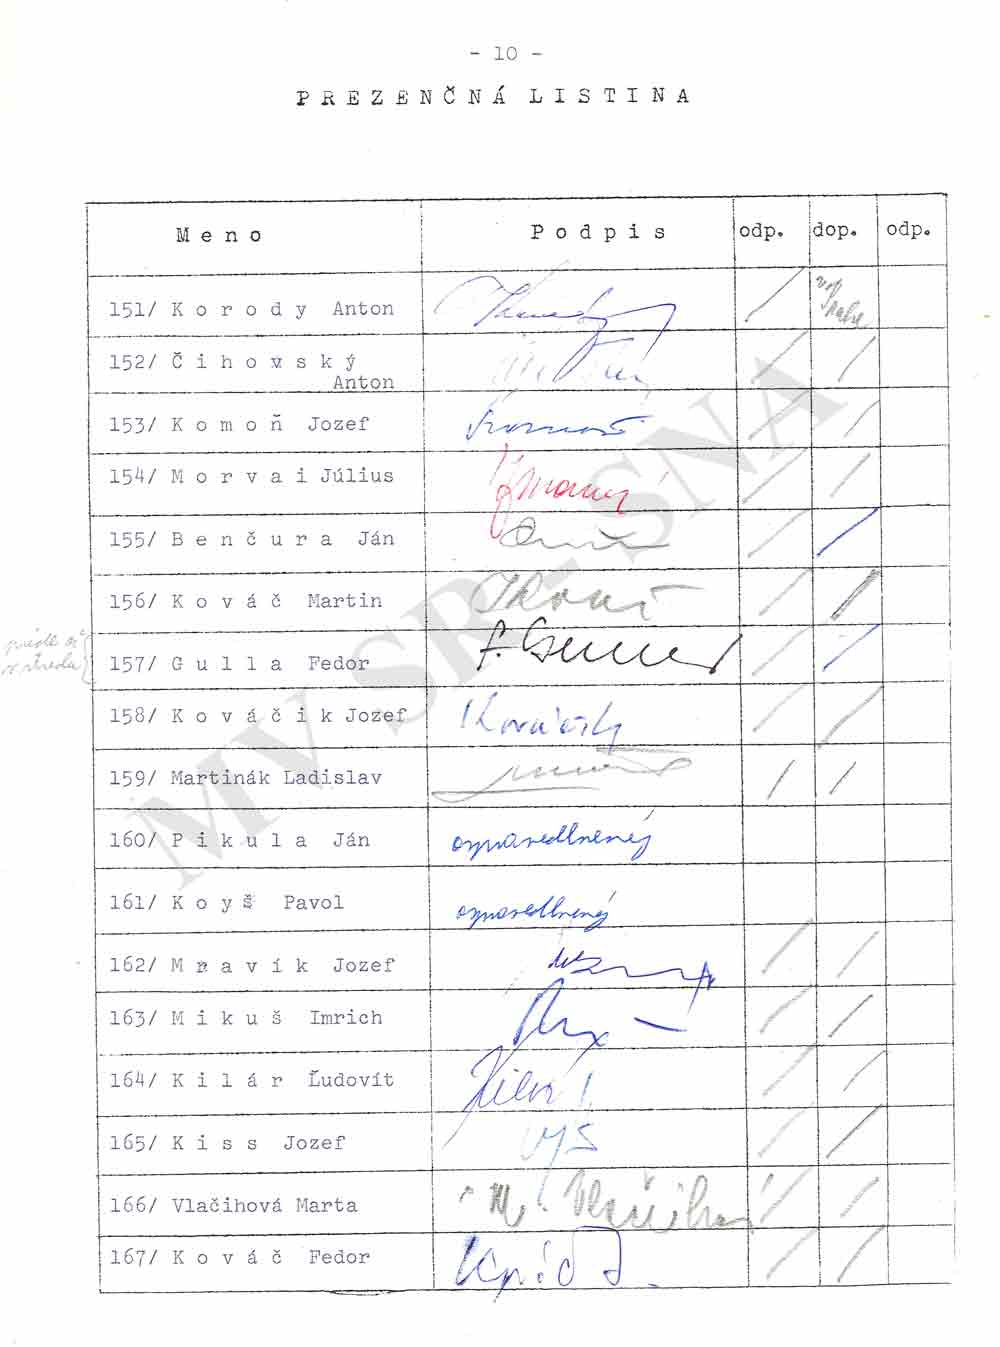 - 10 -
PREZENČNÁ LISTINA
Meno Podpis odp. dop. odp.
151/ Korody Anton v Prahe
152/ Čihovský
Anton
153/ Komoň Jozef
154/ Morvai Július
155/ Benčura Ján
156/ Kováč Martin
157/ Gulla Fedor
158/ Kováčik Jozef Kováčik
159/ Martinák Ladislav
160/ Pikula Ján ospravedlnený
161/ Koyš Pavol ospravedlnený
162/ Mravík Jozef
163/ Mikuš Imrich
164/ Kilár Ľudovít Kilár
165/ Kiss Jozef
166/ Vlačihová Marta M. Vlačihová
167/ Kováč Fedor
MV SR - SNA